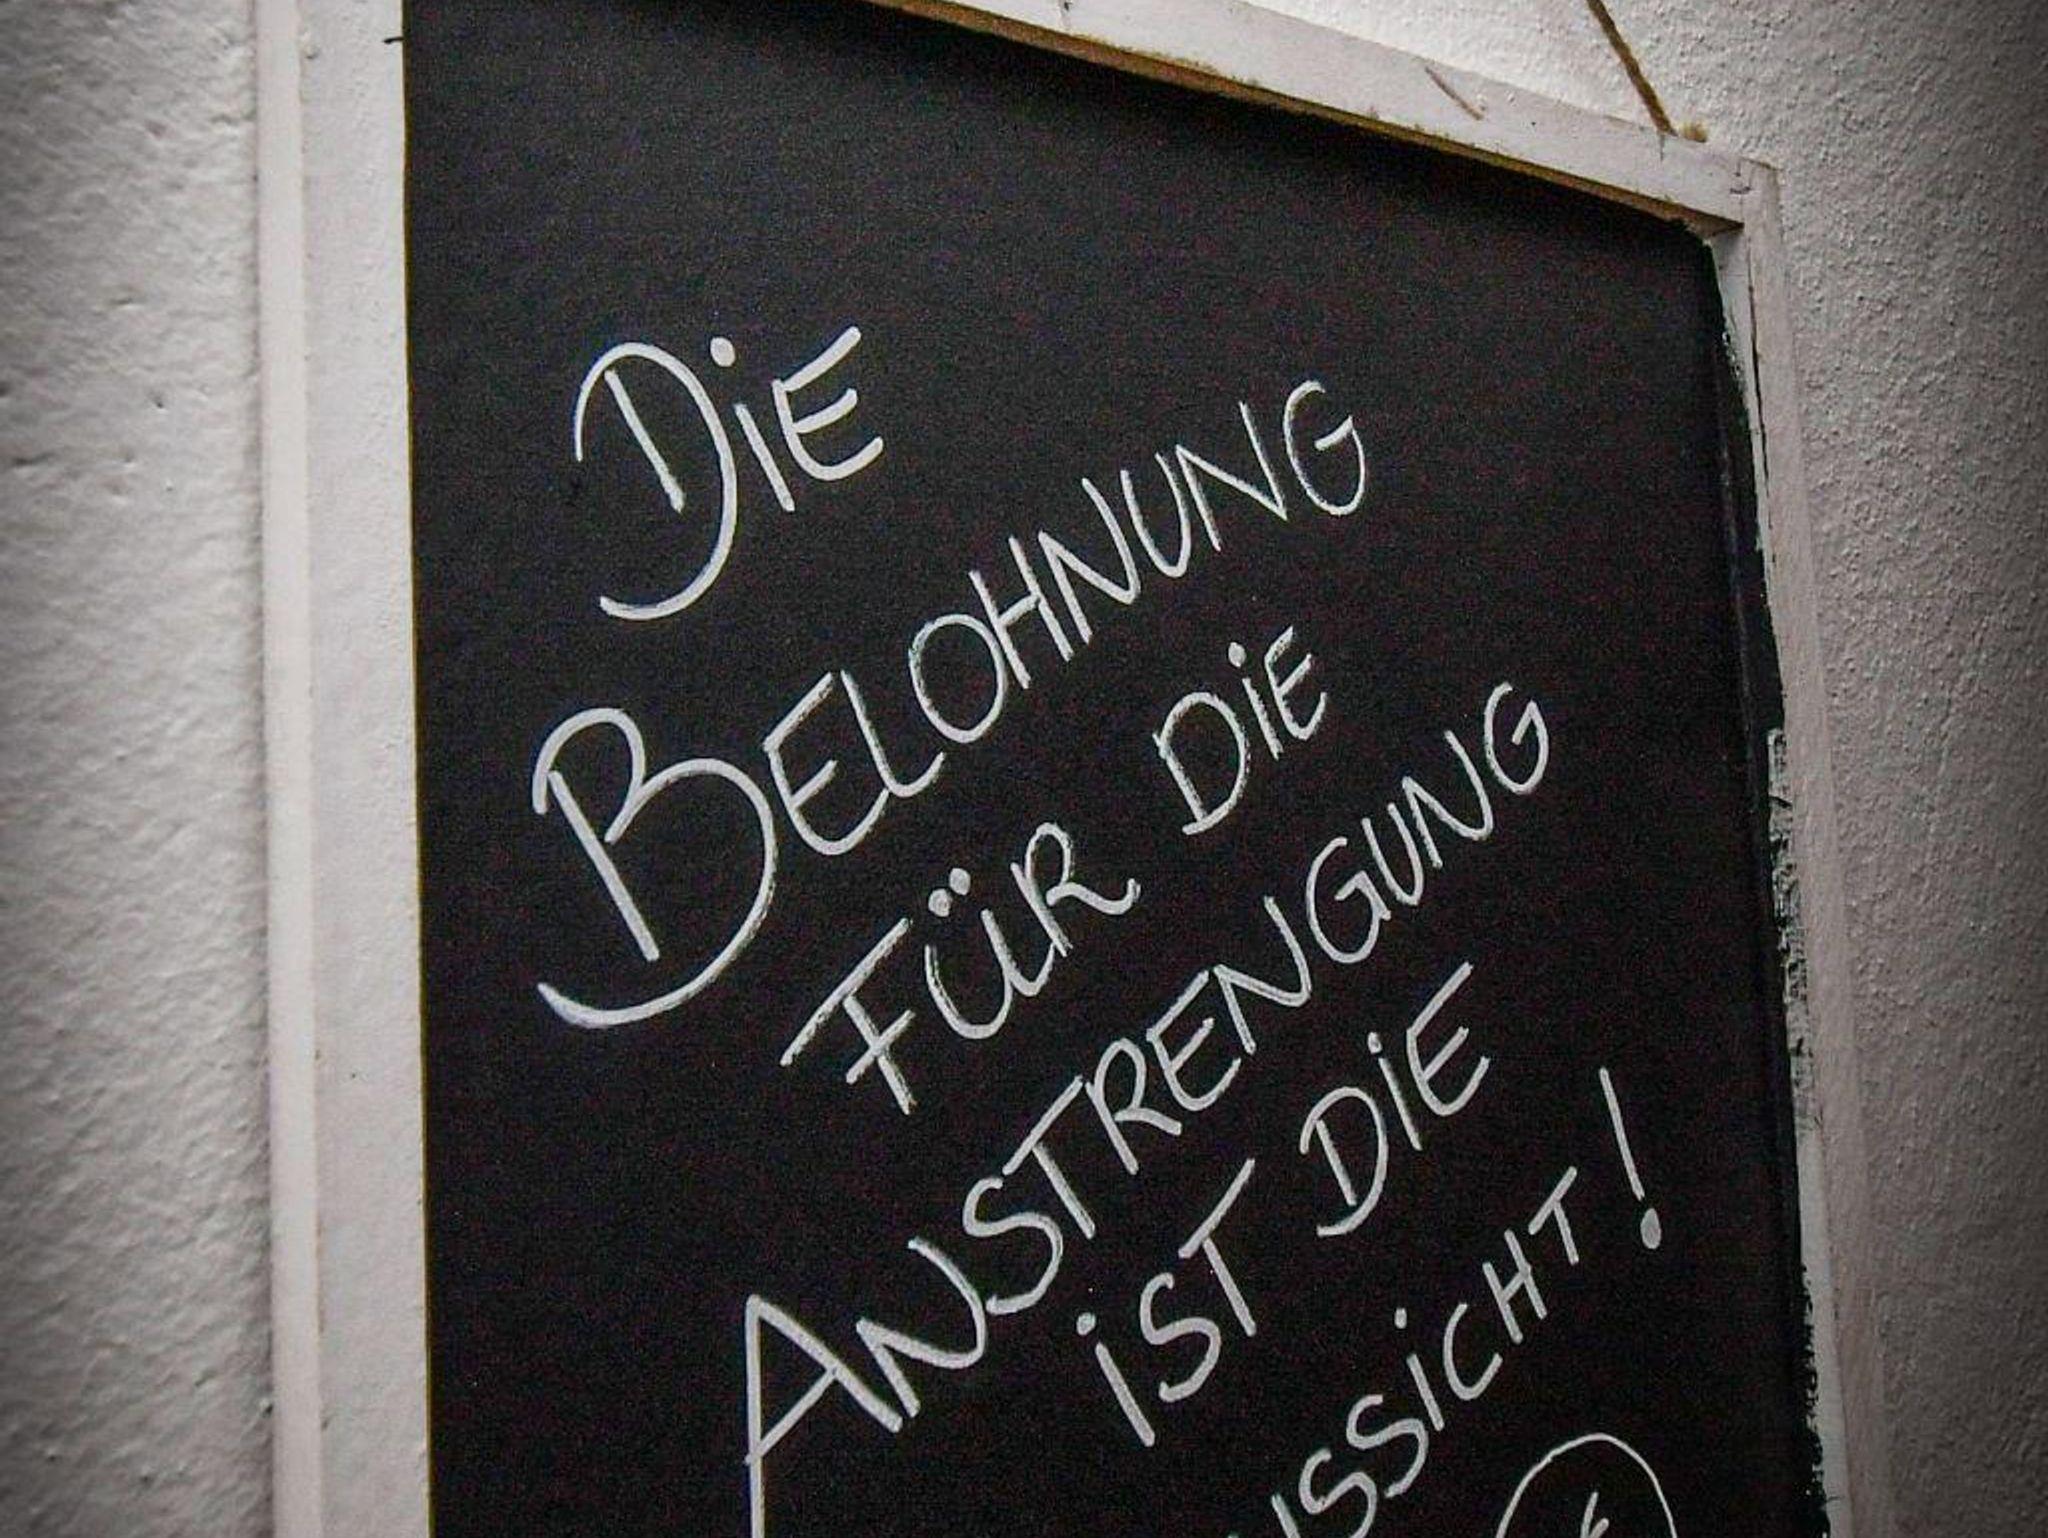 DiE
BELOHNUNG
FÜR DiE
ANSTRENGUNG
iST DiE
USSiCHT!